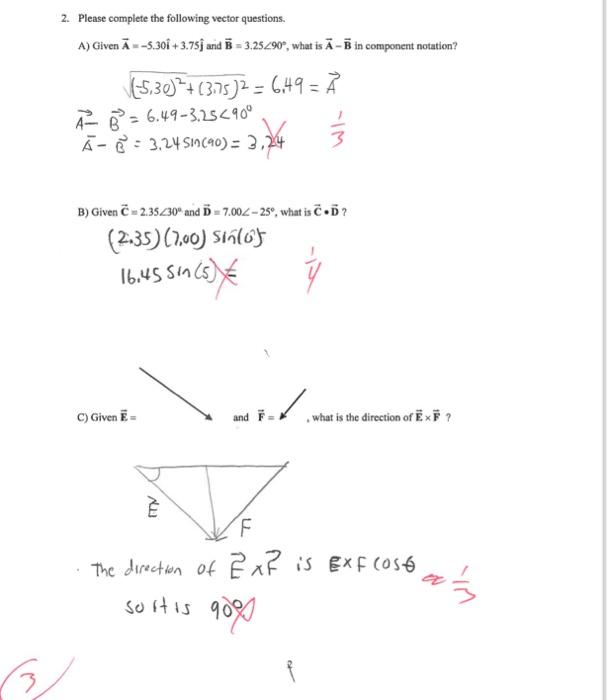 2. Please complete the following vector questions.
A) Given A⃗ = -5.30î + 3.75ĵ and B⃗ = 3.25∠90°, what is A⃗ - B⃗ in component notation?
√(-5.30)² + (3.75)² = 6.49 = A⃗
A⃗ - B⃗ = 6.49 - 3.25<90°
A⃗ - B⃗ = 3.24 sin(90) = 3.24
1/3
B) Given C⃗ = 2.35∠30° and D⃗ = 7.00∠-25°, what is C⃗ • D⃗ ?
(2.35)(7.00) sin(
16.45 sin(5) =
1/4
C) Given E⃗ = and F⃗ = , what is the direction of E⃗ × F⃗ ?
E⃗
F
The direction of E⃗ × F⃗ is E×F cosθ
1/3
so it is 90°
3